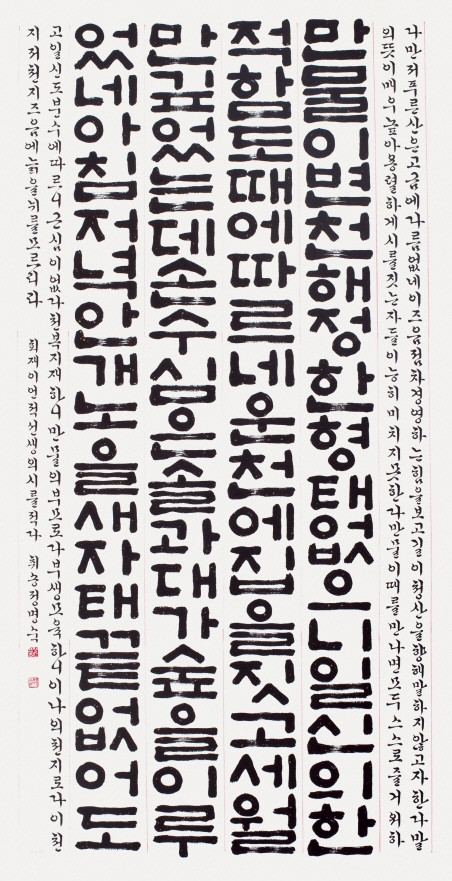 나만저푸른산은고금에다름없네이즈음점차경영하는힘을보고길이청산을향해말하지않고자한다말
의뜻이매우높아용렬하게시를짓는자들이능히미치지못한다만물이때를만나면모두스스로즐거워하
만물이변천해정한형태없으니일신의한
적함도때에따르네운천에집을짓고세월
만깊었는데손수심은솔과대가숲을이루
었네아침저녁안개노을새자태끝없어도
고일신도분수에따르니근심이없다천복지재하니만물의부모로다부생모육하니이나의천지로다이천
지저천지즈음에늙을뉘를모르리라 회재이언적선생의시를적다 취송정명숙